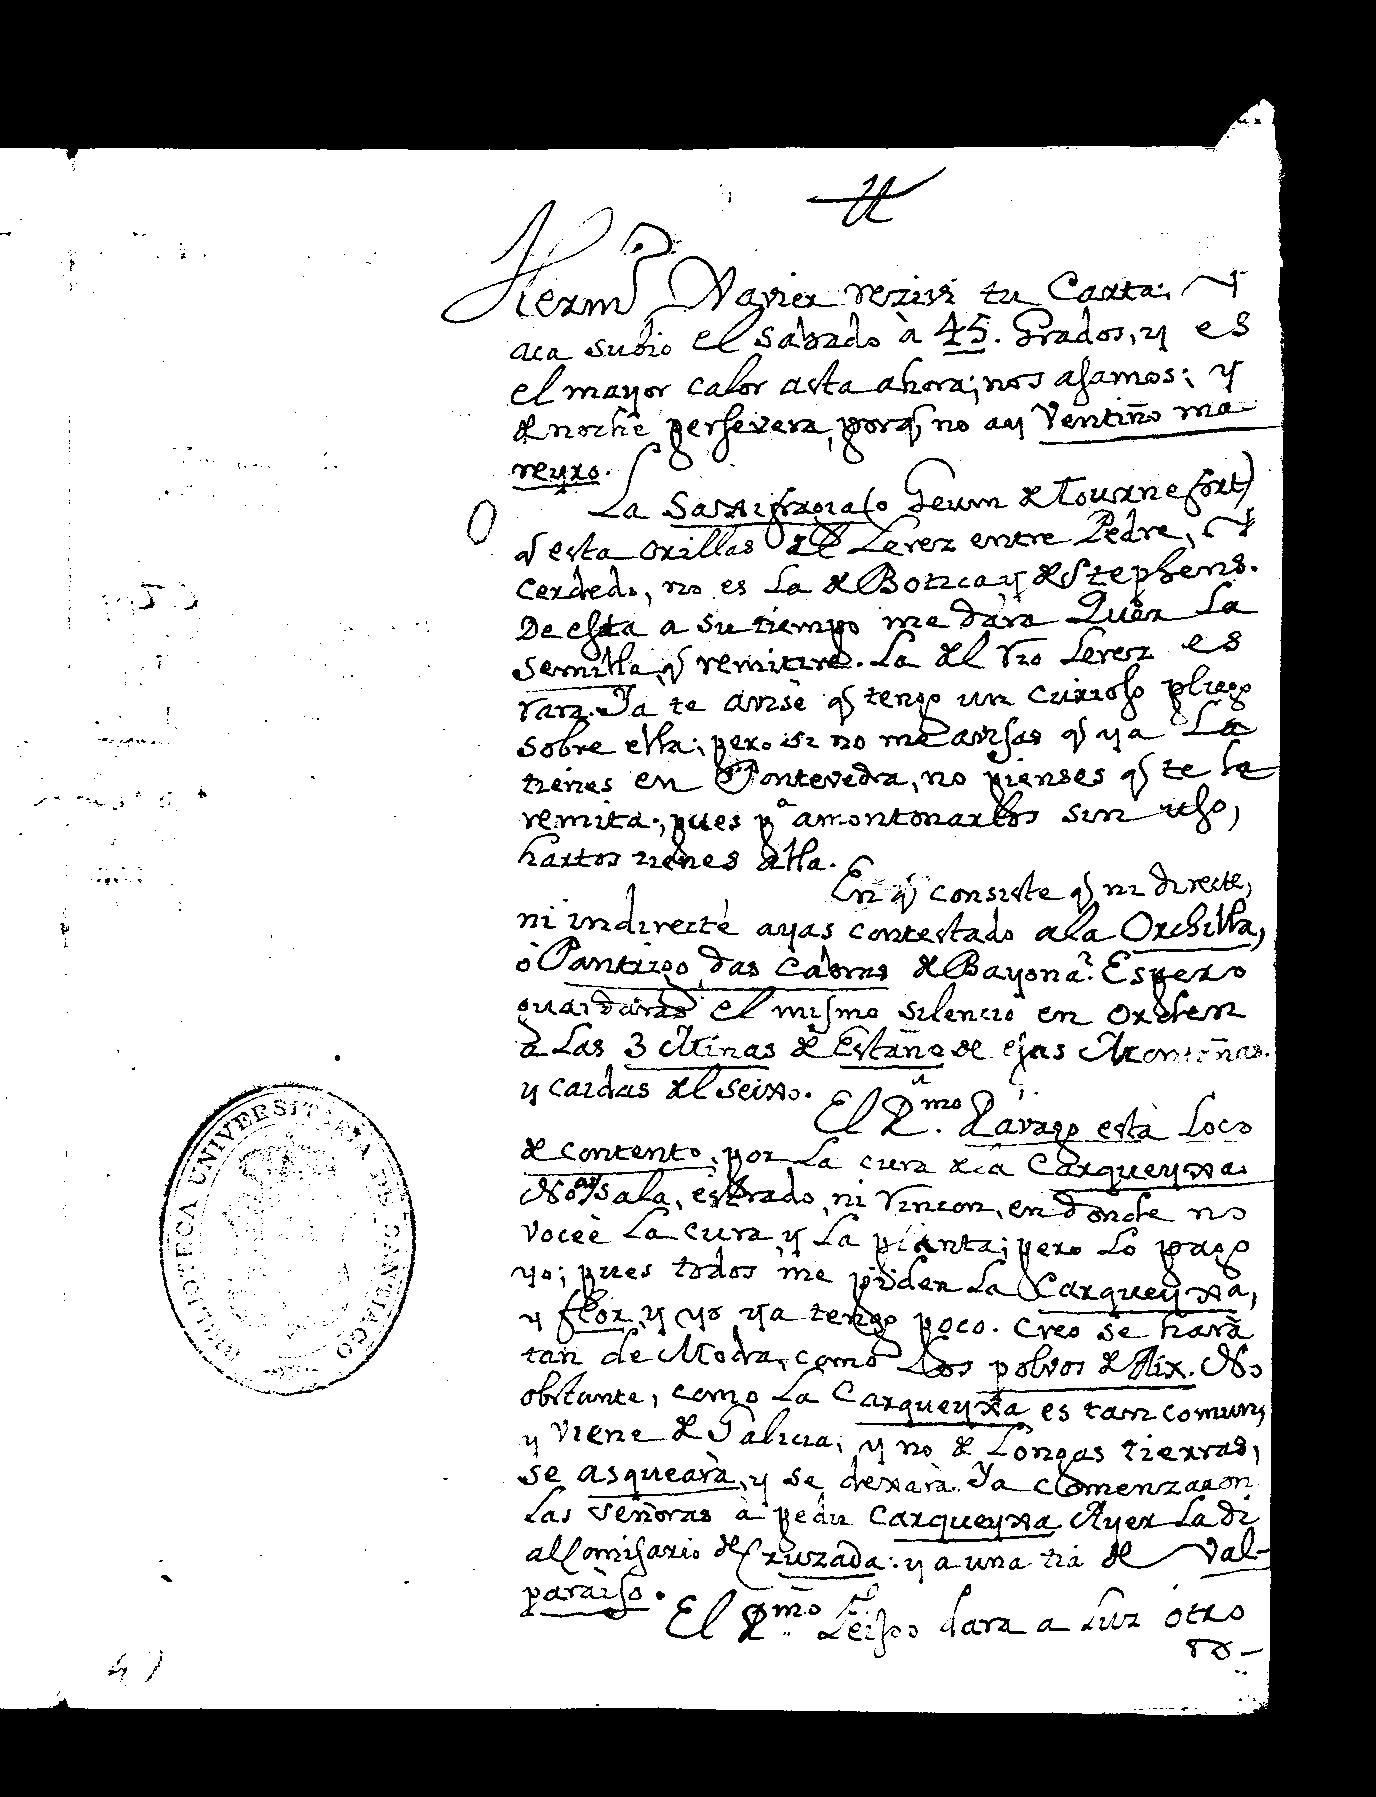 Hermo Xavier rezivi tu Carta. Y
aca subio el sabado à 45. Grados, y es
el mayor calor asta ahora; nos asamos; y
de noche persevera, porq no ay Ventiño ma-
reyro.
La Saxifragia (o Geum de Tournefort)
q esta orillas del Lerez entre Pedre, Y
Cerdedo, no es la de Botica, y de Stephens.
De esta a su tiempo me dara Quer la
semilla, q remitire. La del rio Lerez es
rara. Ya te avisè q tengo un curioso pliego
sobre ella; pero si no me avisas q ya la
tienes en Pontevedra, no pienses q te le
remita; pues pa amontonarlos sin uso,
hartos tienes alla.
En q consiste q ni directe,
ni indirecte ayas contestado a la Orchilla,
ò Pantrigo das cabras de Bayona? Espero
guardaràs el mismo silencio en orden
à las 3 Minas de Estaño de esas Montañas
y caidas del Seixo.
El Rmo Ravago està loco
de contento, por la cura de la Carqueyxa.
No ay sala, estrado, ni rincon, en donde no
voceè la cura, y la planta; pero lo pago
yo; pues todos me piden la Carqueyxa,
y flor, y yo ya tengo poco. Creo se harà
tan de Moda, como los polvos de Aix. No
obstante, como la Carqueyxa es tan comun,
y viene de Galicia, y no de Longas tierras,
se asquearà, y se dexarà. Ya comenzaron
las señoras à pedir Carqueyxa. Ayer la di
al Comisario de Cruzada: y a una tia de Val-
paraiso.
El Rmo Feijoo dara a luz otro
to-
BIBLIOTECA UNIVERSITARIA DE SANTIAGO